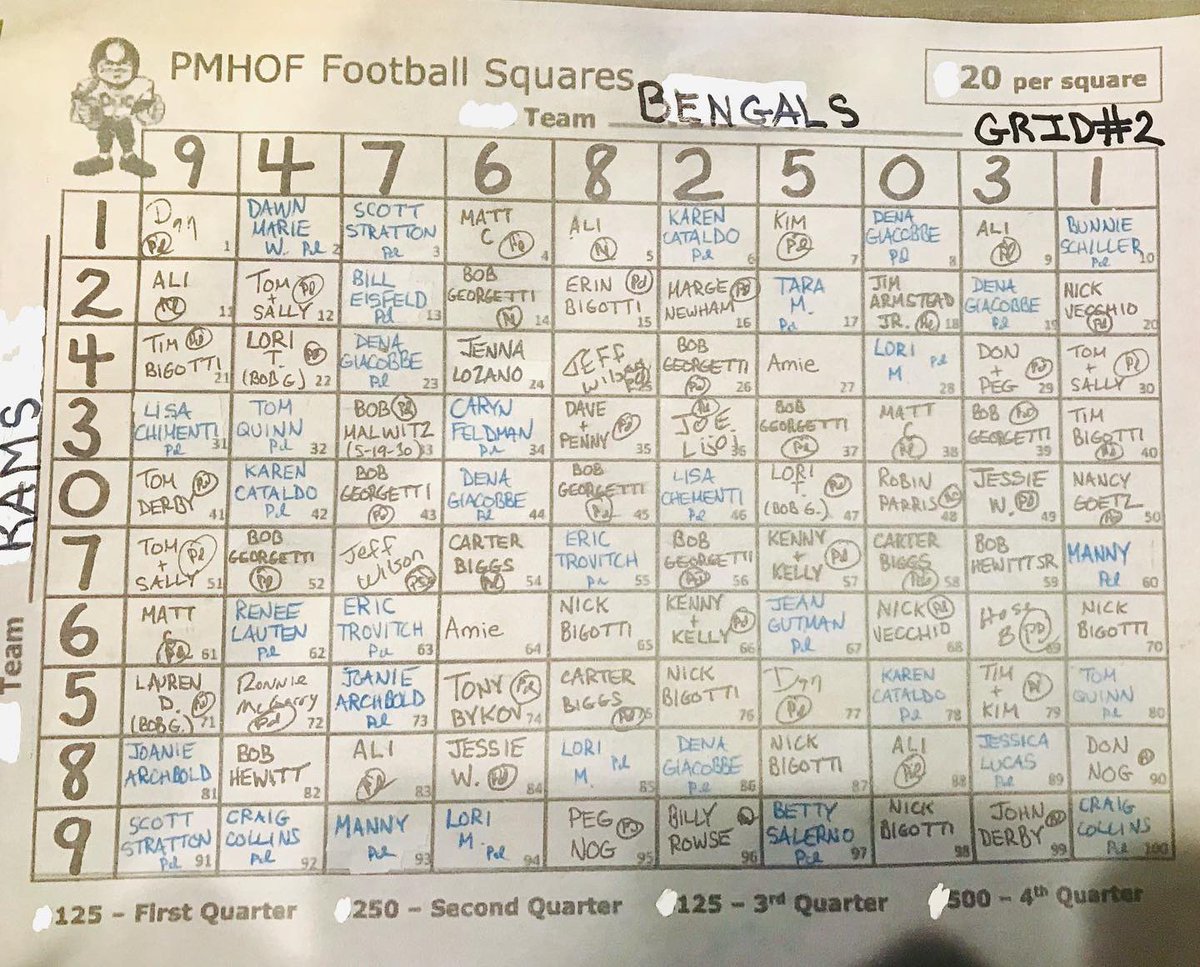 PMHOF Football Squares
20 per square
Team BENGALS
GRID#2
9 4 7 6 8 2 5 0 3 1
Team RAMS
1
Pd 1
DAWN MARIE W. Pd 2
SCOTT STRATTON Pd 3
MATT C Pd 4
ALI Pd 5
KAREN CATALDO Pd 6
KIM Pd 7
DENA GIACOBBE Pd 8
ALI Pd 9
BUNNIE SCHILLER Pd 10
2
ALI Pd 11
TOM + SALLY Pd 12
BILL EISFELD Pd 13
BOB GEORGETTI Pd 14
ERIN BIGOTTI Pd 15
MARGE NEWHAM Pd 16
TARA M. Pd 17
JIM ARMSTEAD JR. Pd 18
DENA GIACOBBE Pd 19
NICK VECCHIO Pd 20
4
TIM BIGOTTI Pd 21
LORI T. (BOB G.) Pd 22
DENA GIACOBBE Pd 23
JENNA LOZANO 24
JEFF Wilson Pd 25
BOB GEORGETTI Pd 26
Amie 27
LORI M Pd 28
DON + PEG Pd 29
TOM + SALLY Pd 30
3
LISA CHIMENTI Pd 31
TOM QUINN Pd 32
BOB MALWITZ Pd (5-19-30) 33
CARYN FELDMAN Pd 34
DAVE + PENNY Pd 35
Pd JOE 36
BOB GEORGETTI Pd 37
MATT C Pd 38
BOB GEORGETTI Pd 39
TIM BIGOTTI Pd 40
0
TOM DERBY Pd 41
KAREN CATALDO Pd 42
BOB GEORGETTI Pd 43
DENA GIACOBBE Pd 44
BOB GEORGETTI Pd 45
LISA CHEMENTI Pd 46
LORI T. (BOB G.) Pd 47
ROBIN PARRIS Pd 48
JESSIE W. Pd 49
NANCY GOETZ Pd 50
7
TOM + SALLY Pd 51
BOB GEORGETTI Pd 52
Jeff Wilson Pd 53
CARTER BIGGS Pd 54
ERIC TROVITCH Pd 55
BOB GEORGETTI Pd 56
KENNY + KELLY Pd 57
CARTER BIGGS Pd 58
BOB HEWITT SR 59
MANNY Pd 60
6
MATT C Pd 61
RENEE LAUTEN Pd 62
ERIC TROVITCH Pd 63
Amie 64
NICK BIGOTTI 65
KENNY + KELLY Pd 66
JEAN GUTMAN Pd 67
NICK VECCHIO Pd 68
B PD 69
NICK BIGOTTI 70
5
LAUREN D. (BOB G.) Pd 71
Ronnie McGarry Pd 72
JOANIE ARCHBOLD Pd 73
TONY BYKOV Pd 74
CARTER BIGGS Pd 75
NICK BIGOTTI 76
Pd 77
KAREN CATALDO Pd 78
TIM + KIM Pd 79
TOM QUINN Pd 80
8
JOANIE ARCHBOLD 81
BOB HEWITT 82
ALI Pd 83
JESSIE W. Pd 84
LORI M. Pd 85
DENA GIACOBBE Pd 86
NICK BIGOTTI 87
ALI Pd 88
JESSICA LUCAS Pd 89
DON NOG 90
9
SCOTT STRATTON Pd 91
CRAIG COLLINS Pd 92
MANNY Pd 93
LORI M. Pd 94
PEG NOG Pd 95
BILLY ROWSE 96
BETTY SALERNO Pd 97
NICK BIGOTTI 98
JOHN DERBY Pd 99
CRAIG COLLINS Pd 100
125 – First Quarter
250 – Second Quarter
125 – 3rd Quarter
500 – 4th Quarter